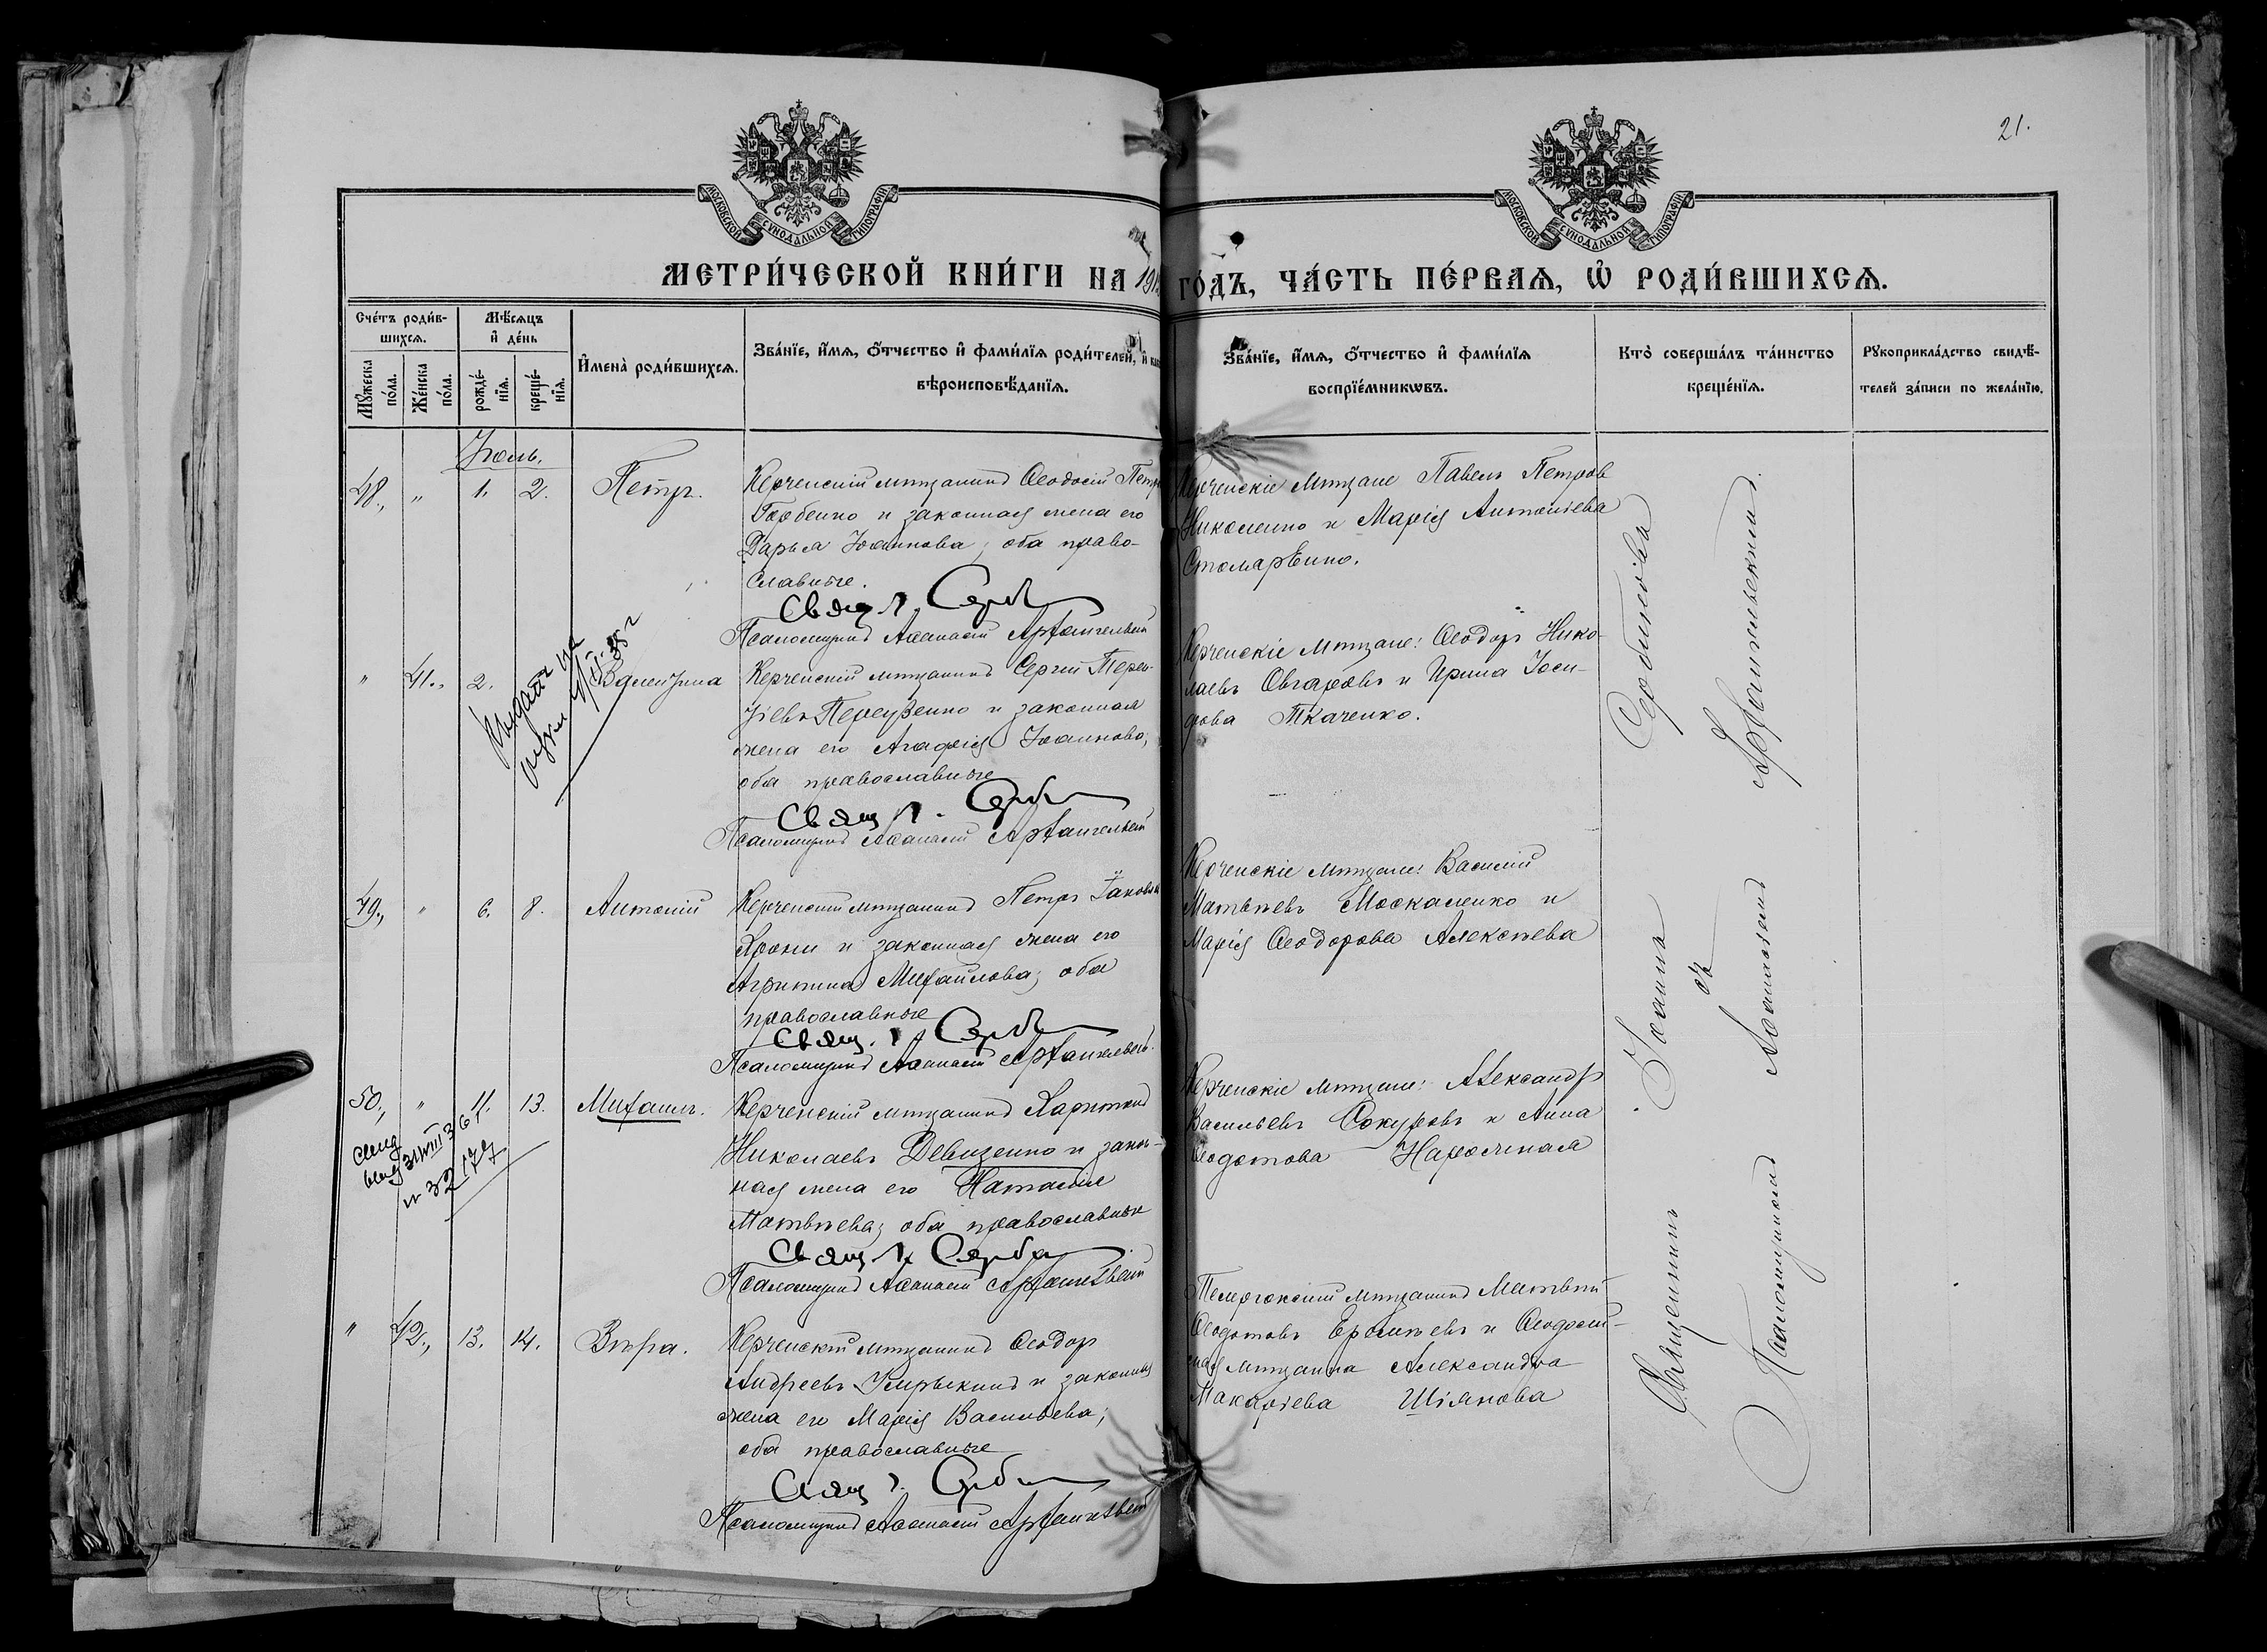 21.
МОСКОВСКОЙ СѴНОДАЛЬНОЙ ТИПОГРАФІИ
МОСКОВСКОЙ СѴНОДАЛЬНОЙ ТИПОГРАФІИ
МЕТРИ́ЧЕСКОЙ КНИ́ГИ НА 191 ГО́ДЪ, ЧА́СТЬ ПЕ́РВАѦ, Ѽ РОДИ́ВШИХСѦ.
Сче́тъ роди́в-
шихсѧ.
Мꙋ́жеска по́ла.
Же́нска по́ла.
Мѣ́сѧцъ и҆ де́нь
рожде́нїѧ.
креще́нїѧ.
И҆мена̀ роди́вшихсѧ.
Зва́нїе, и҆́мѧ, ѻ҆́тчество и҆ фами́лїѧ роди́телей, и҆
вѣроисповѣ́данїѧ.
Зва́нїе, и҆́мѧ, ѻ҆́тчество и҆ фами́лїѧ
воспрїе́мникѡвъ.
Кто̀ соверша́лъ та́инство
креще́нїѧ.
Рꙋкоприкла́дство свидѣ́-
телей за́писи по жела́нїю.
Іюль.
48., " 1. 2. Петръ.
Керченскій мѣщанинъ Ѳеодосій
Горбенко и законная жена его
Дарья Іоаннова, оба право-
славные.
Свящ. І. Серб
Псаломщикъ Аѳанасій Архангельскій
Керченскіе мѣщане Павелъ Петровъ
Николенко и Марія Антоніева
Столярѣнко.
" 41., 2. Валентина
Керченскій мѣщанинъ Сергій Терен-
тіевъ и законная
жена его Агафія Іоаннова,
оба православные
Свящ. І. Серб
Псаломщикъ Аѳанасій Архангельскій
Керченскіе мѣщане: Ѳеодоръ Нико-
лаевъ Овчаровъ и Ирина Іоси-
фова Ткаченко.
49., " 6. 8. Антоній
Керченскій мѣщанинъ Петръ Іаковл
и законная жена его
Агрипина Михайлова, оба
православные
Свящ. І. Серб
Псаломщикъ Аѳанасій Архангельскій
Керченскіе мѣщане: Василій
Матвѣевъ Москаленко и
Марія Ѳеодорова Алексѣева
50., " 11. 13. Михаилъ.
Керченскій мѣщанинъ Харитонъ
Николаевъ Девизенко и закон-
ная жена его Наталія
Матвѣева, оба православные
Свящ. І. Серба
Псаломщикъ Аѳанасій Архангельскій
Керченскіе мѣщане: Александръ
Васильевъ Сокуровъ и Анна
Ѳеодотова
" 42., 13. 14. Вѣра.
Керченскій мѣщанинъ Ѳеодоръ
Андреевъ и законная
жена его Марія Васильева;
оба православные
Свящ. І. Серб
Псаломщикъ Аѳанасій Архангельскій
Темрюкскій мѣщанинъ Матвѣй
Ѳеодотовъ и Ѳеодосій-
ская мѣщанка Александра
Макаріева Шіянова
Священникъ Іоаннъ
съ
Псаломщикомъ Аѳанасіемъ Архангельскимъ.